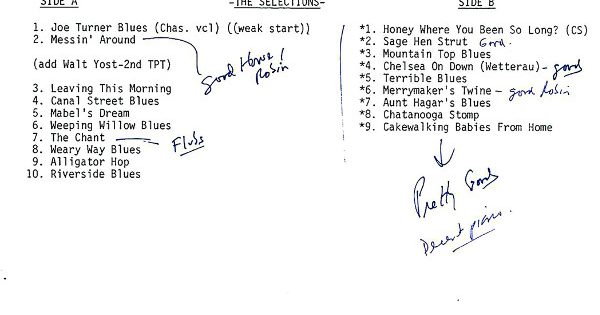 SIDE A
-THE SELECTIONS-
SIDE B
1. Joe Turner Blues (Chas. vcl) ((weak start))
2. Messin' Around
(add Walt Yost-2nd TPT)
Robin
3. Leaving This Morning
4. Canal Street Blues
5. Mabel's Dream
6. Weeping Willow Blues
7. The Chant
Flubs
8. Weary Way Blues
9. Alligator Hop
10. Riverside Blues
*1. Honey Where You Been So Long? (CS)
*2. Sage Hen Strut Good.
*3. Mountain Top Blues
*4. Chelsea On Down (Wetterau)- good
*5. Terrible Blues
*6. Merrymaker's Twine - good Robin
*7. Aunt Hagar's Blues
*8. Chatanooga Stomp
*9. Cakewalking Babies From Home
Pretty Good
Decent piano.